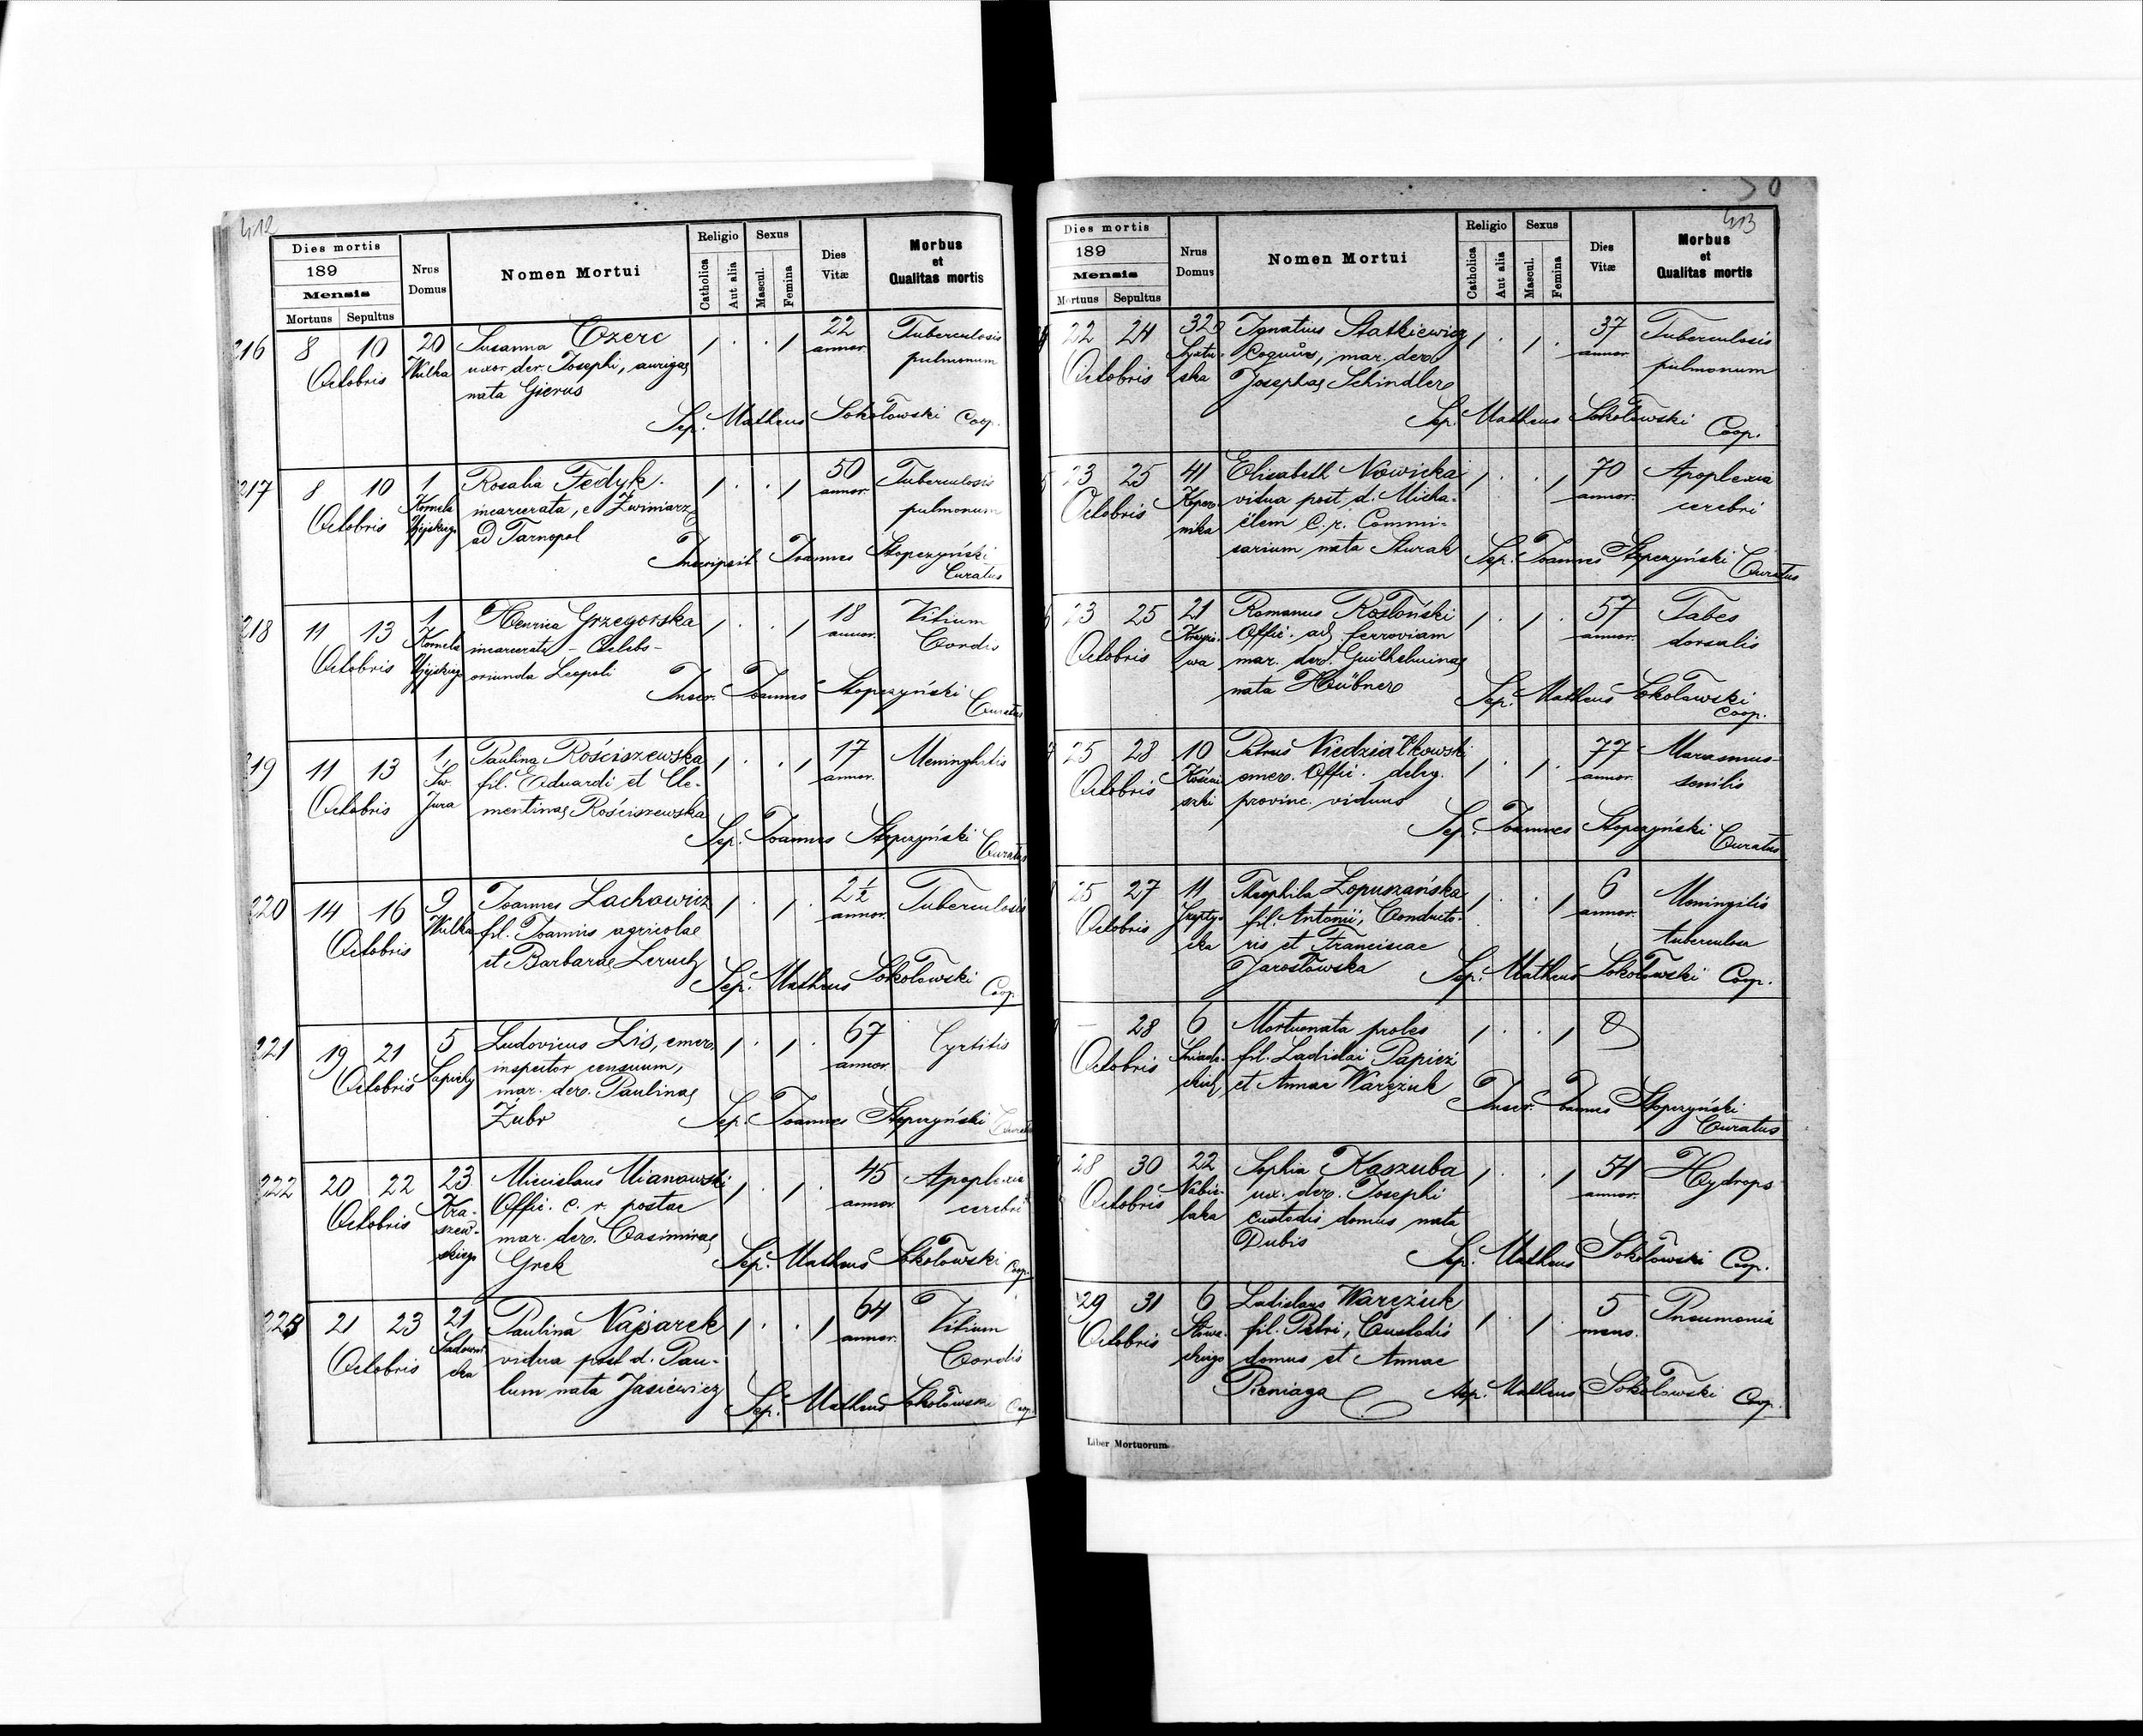 412
Dies mortis
189
Mensis
Mortuus Sepultus
Nrus Domus
Nomen Mortui
Religio
Catholica
Aut alia
Sexus
Mascul.
Femina
Dies Vitæ
Morbus et Qualitas mortis
216 8 10 20 Susanna Czerc 1 . . 1 22 Tuberculosis
Octobris Wulka uxor der. Josephi, aurigae annor. pulmonum
nata Gierus
Sep. Matheus Sokołowski Coop.
217 8 10 1 Rosalia Fedyk. 1 . . 1 50 Tuberculosis
Octobris Kornela incarcerata, e Zwiniarze annor. pulmonum
Ujejskiego ad Tarnopol
Inscripsit Joannes Stopczyński
Curatus
218 11 13 1 Henrica Grzegorska 1 . . 1 18 Vitium
Octobris Kornela incarcerata - Celebs - annor. Cordis
Ujejskiego oriunda Leopoli
Inscr. Joannes Stopczyński
Curatus
219 11 13 1, Paulina Rościszewska 1 . . 1 17 Meninghitis
Octobris Sw. fil. Eduardi et Cle- annor.
Jura mentinae Rościszewska
Sep. Joannes Stopczyński
Curatus
220 14 16 9 Joannes Lachowicz 1 . 1 . 2½ Tuberculosis
Octobris Wulka fil. Joannis agricolae annor.
et Barbarae Leruch
Sep. Matheus Sokołowski
Coop.
221 19 21 5 Ludovicus Lis, emer. 1 . 1 . 67 Cyrtitis
Octobris Sapiehy inspector censuum, annor.
mar. der. Paulinae
Żubr
Sep. Joannes Stopczyński Curatus
222 20 22 23 Miecislaus Mianowski 1 . 1 . 45 Apoplexia
Octobris Kra- Offic. c. r. postae annor. cerebri
szew- mar. der. Casimirae
skiego Grek
Sep. Matheus Sokołowski Coop.
223 21 23 21 Paulina Najsarek 1 . . 1 64 Vitium
Octobris Sadowni- vidua post d. Pau- annor. Cordis
cka lum nata Jasiewicz
Sep. Matheus Sokołowski Coop.
413
Dies mortis
189
Mensis
Mortuus Sepultus
Nrus Domus
Nomen Mortui
Religio
Catholica
Aut alia
Sexus
Mascul.
Femina
Dies Vitæ
Morbus et Qualitas mortis
22 24 Ignatius Statkiewicz 1 . 1 . 37 Tuberculosis
Octobris ska Coquus, mar. der. annor. pulmonum
Josephae Schindler
Sep. Matheus Sokołowski
Coop.
23 25 41 Elisabeth Nowicka 1 . . 1 70 Apoplexia
Octobris Koper- vidua post d. Micha- annor. cerebri
nika ëlem C. r. Commi-
sarium nata Sturak
Sep. Joannes Stopczyński Curatus
23 25 21 Romanus Rostoński 1 . 1 . 57 Tabes
Octobris Krzyw- Offic. ad ferroviam annor. dorsalis
wa mar. der. Guilhelminae
nata Hübner
Sep. Matheus Sokołowski
Coop.
25 28 10 Petrus Niedziałkowski 1 . 1 . 77 Marasmus
Octobris Kościu- emer. Offic. deleg. annor. senilis
szki provinc. viduus
Sep. Joannes Stopczyński
Curatus
25 27 11 Theophila Łopuszańska 1 . . 1 6 Meningitis
Octobris Szepty- fil. Antonii, Conducto- annor. tuberculosa
cka ris et Franciscae
Jarosławska
Sep. Matheus Sokołowski Coop.
- 28 6 Mortuonata proles 1 . . 1
Octobris Śniade- fil. Ladislai Papież
ckich et Annae Warężuk
Inscr. Joannes Stopczyński
Curatus
28 30 22 Sophia Kaszuba 1 . . 1 54 Hydrops
Octobris Nabie- ux. der. Josephi annor.
laka custodis domus nata
Dubis
Sep. Matheus Sokołowski Coop.
29 31 6 Ladislaus Warężuk 1 . 1 . 5 Pneumonia
Octobris Słowa- fil. Petri, Custodis mens.
ckiego domus et Annae
Pieniaga
Sep. Matheus Sokołowski Coop.
Liber Mortuorum